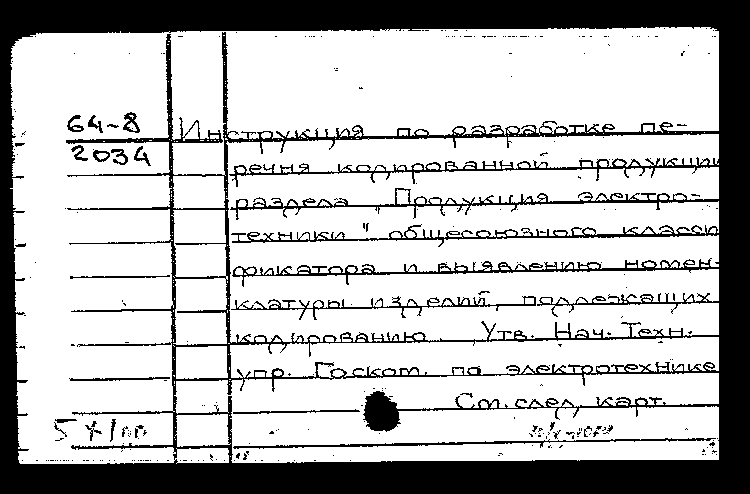 64-8 Инструкция по разработке пе-
2034 речня кодированной продукции
раздела „Продукция электро-
техники" общесоюзного класси
фикатора и выявлению номен-
клатуры изделий, подлежащих
кодированию. Утв. Нач. Техн.
упр. Госком. по электротехнике
См. след. карт.
5 х/пп